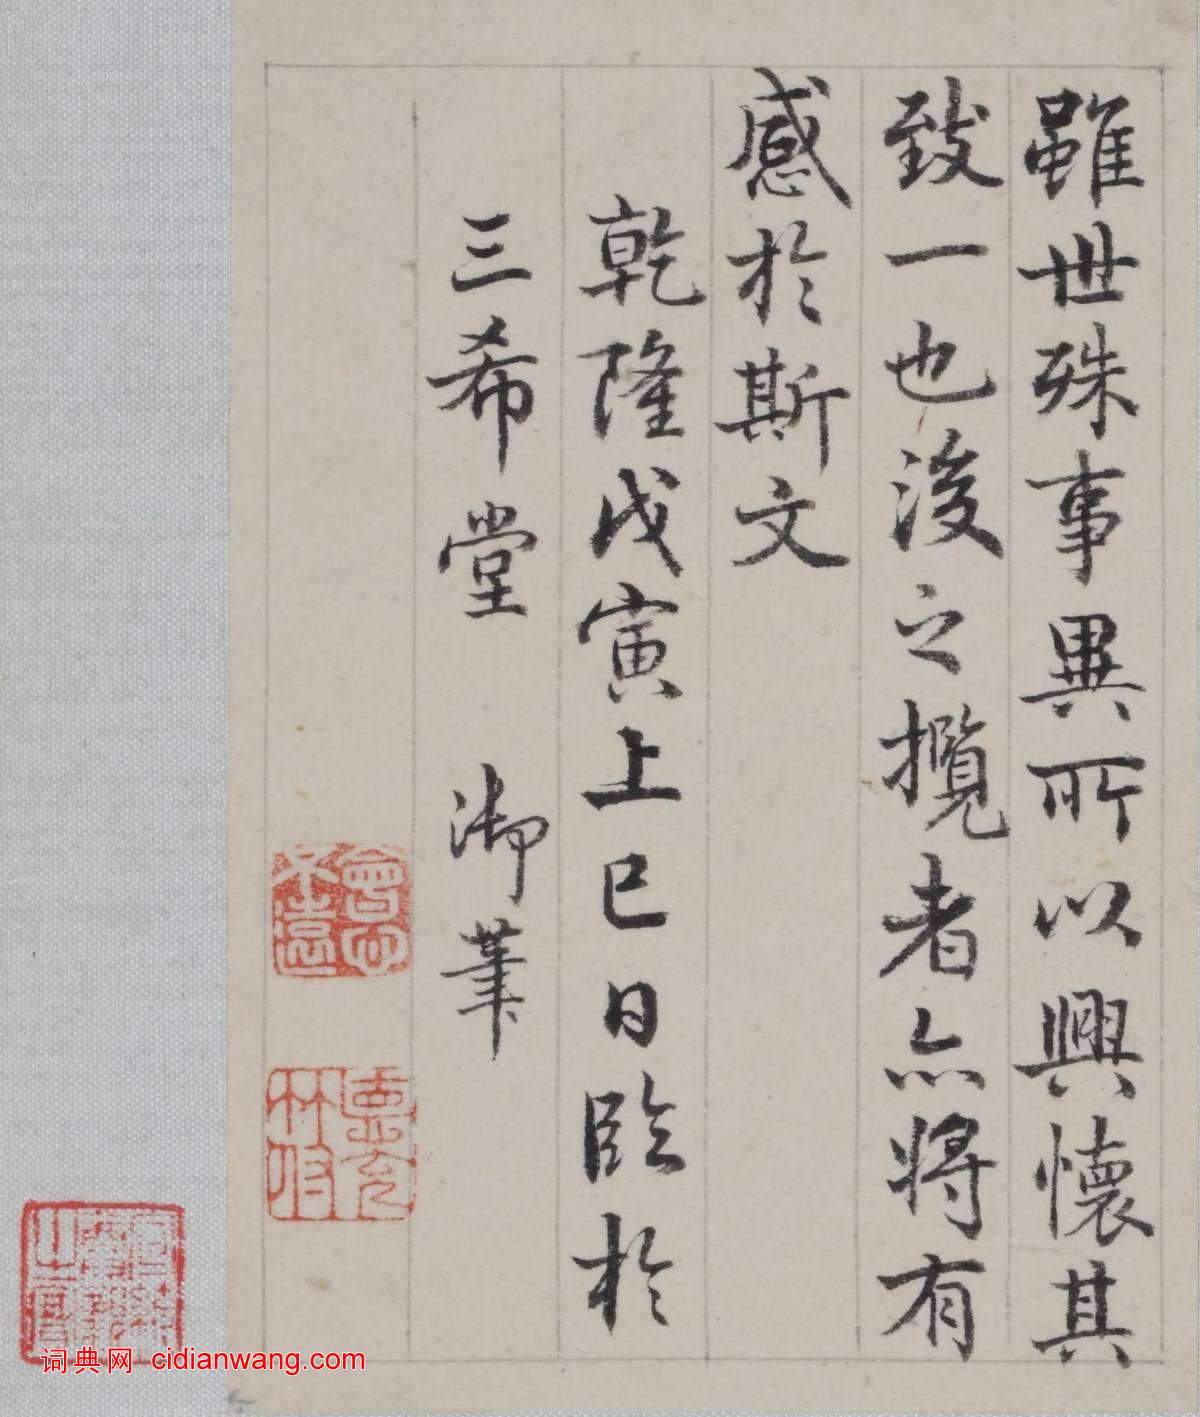 雖世殊事異所以興懷其
致一也後之攬者亦將有
感於斯文
乾隆戊寅上巳日臨於
三希堂 御筆
會心不遠
词典网 cidianwang.com